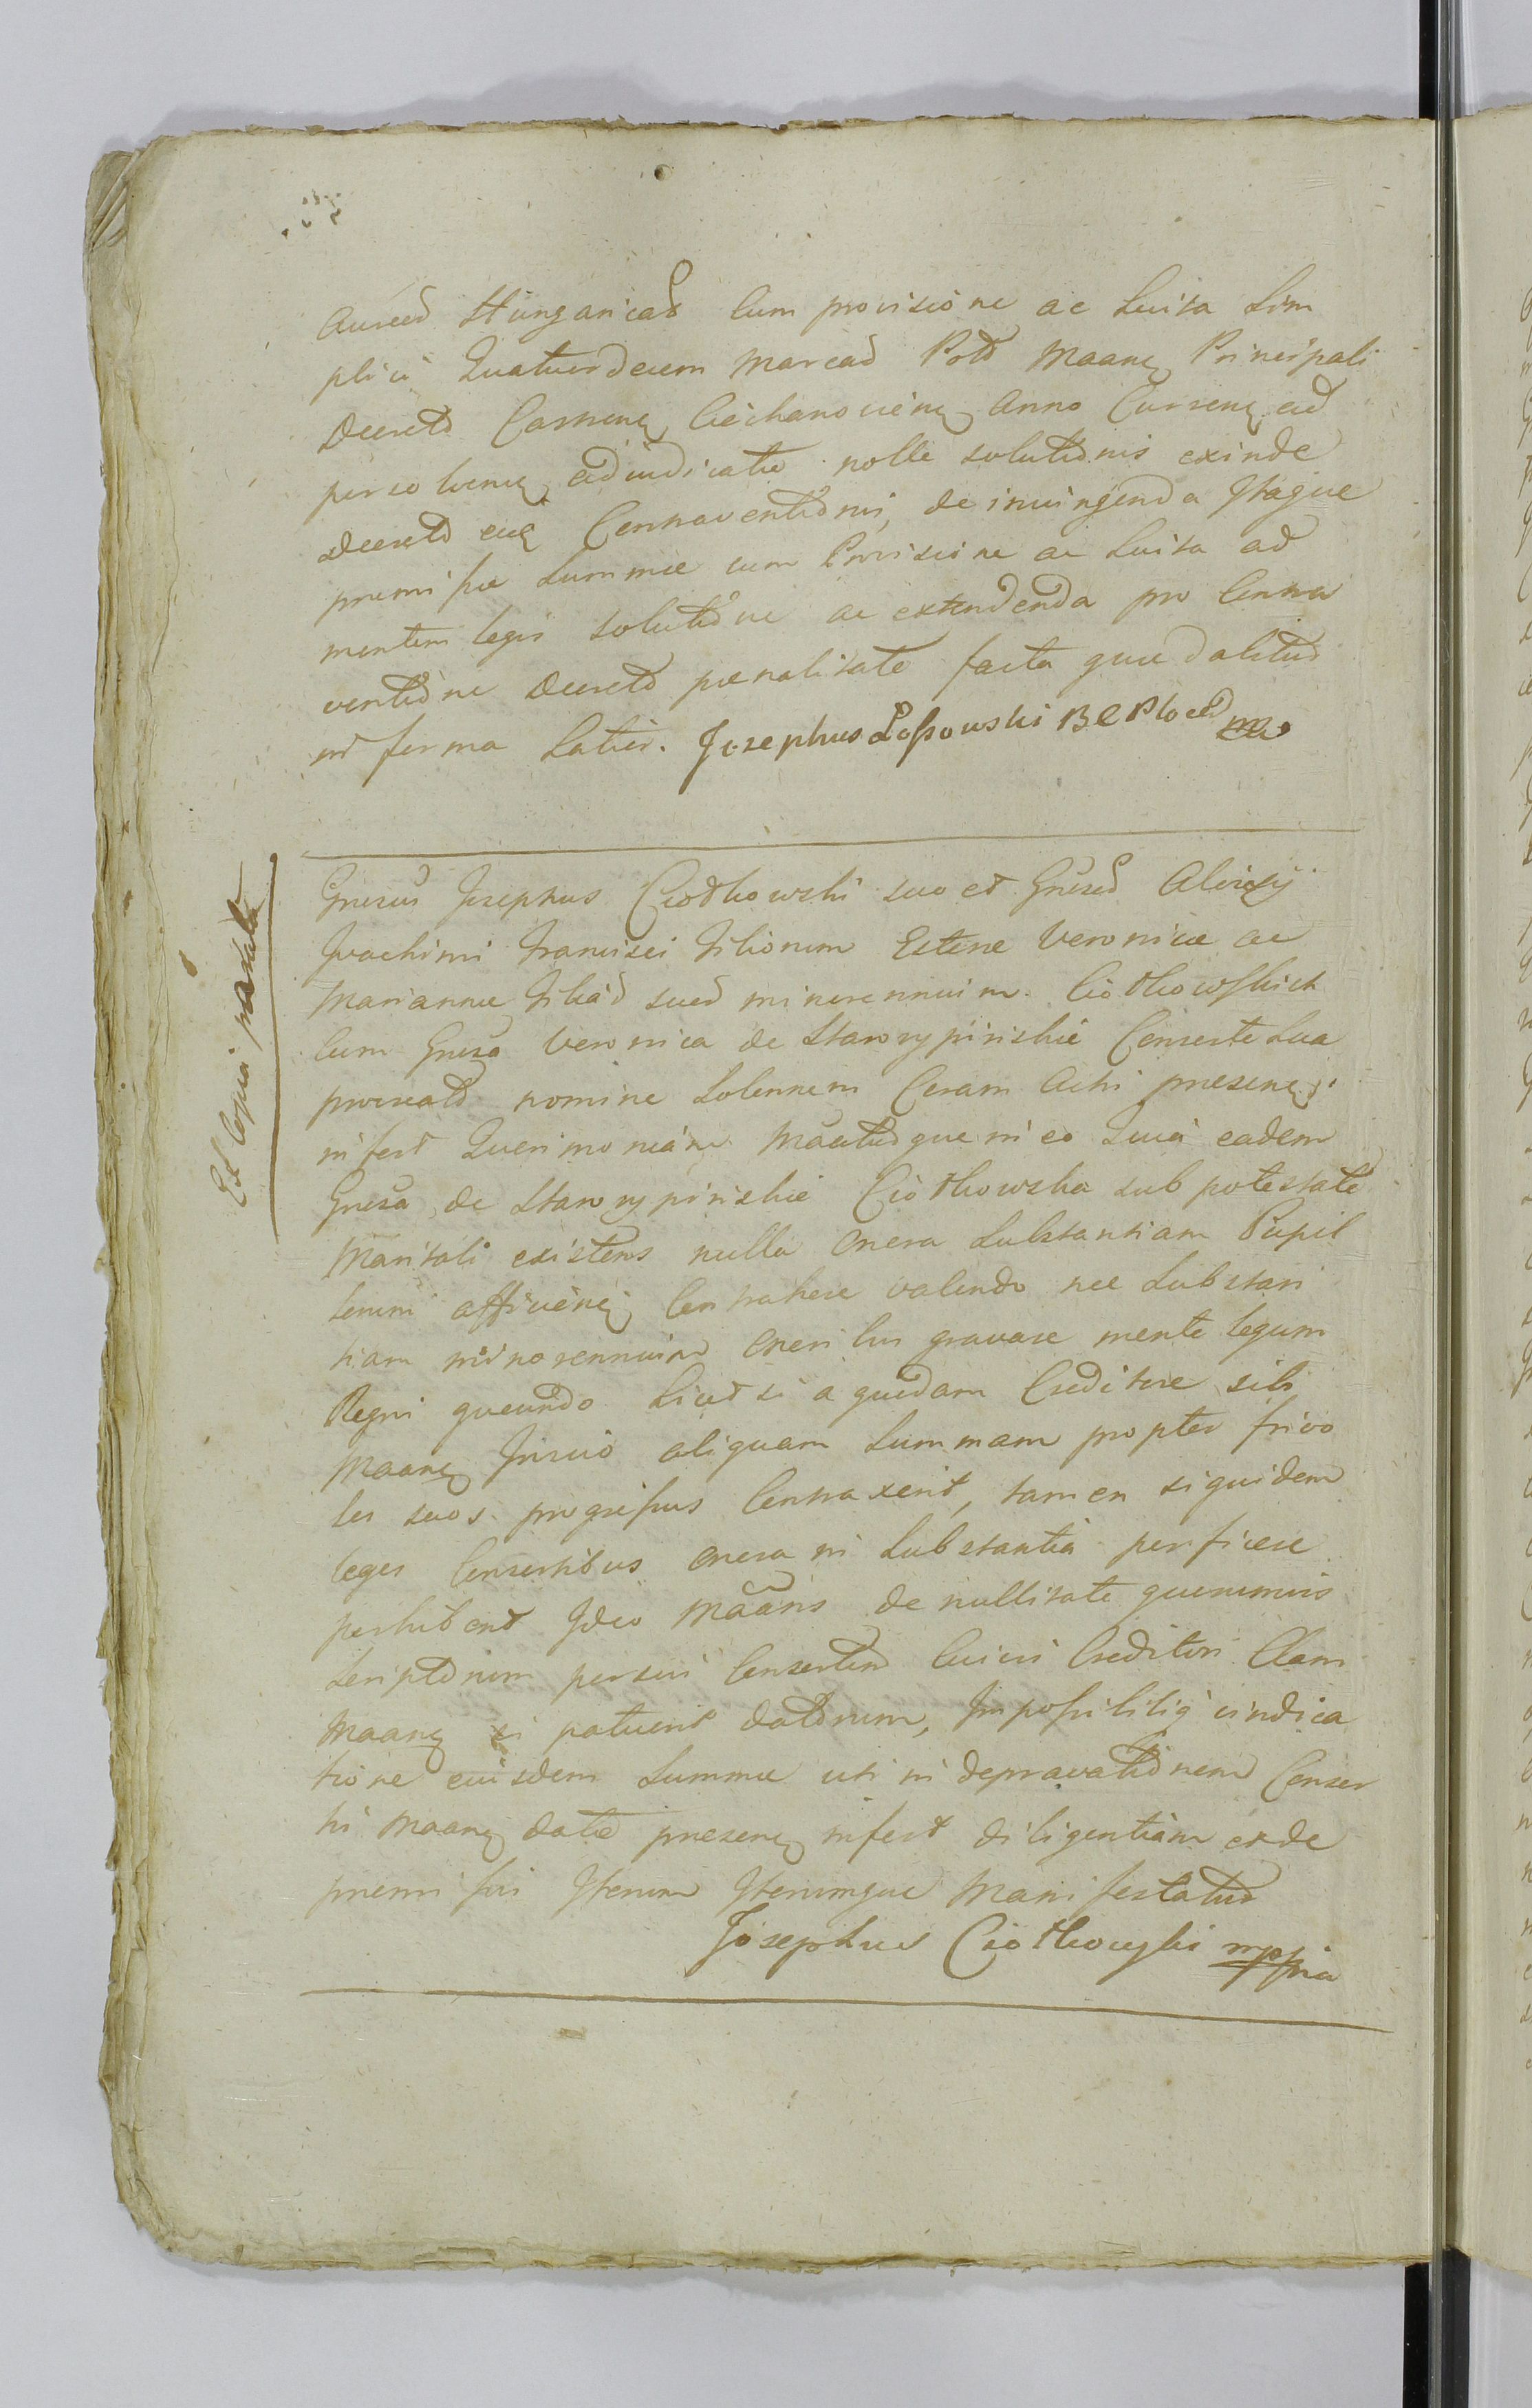 Aureod Hungaricad Cum provisione ac Luita Sim
plici Quatuordecem Marcad Maang Principali
Decreto Castreng Ciechanovieng Anno Curreng
persolveng adiudicatæ nolle solutionis exinde
Decreto Contraventionis, de iniungenda Itaque
premissæ Summæ cum Provisione ac Luita ad
mentem legis solutione ac extendenda pro Contra
ventione Decreto pænalitate facta quæ dabitur
in forma Latior. Josephus Lossowski B C Ploceñ mp
Est Copia parata
Gnsus Josephus Ciotkowski suo et Gnsod Alexy
Joachimi Francisci Filiorum Esterae Veronicæ ac
Mariannæ Filiad suad minorennium Ciotkowskich
Cum Gnsa Veronica de Starorypinskie Consorte Sua
procreato nomine Solennem Coram Actis preseng
infert Querimoniam Maaturque in eo Quia eadem
Gnsa de Starorypinskie Ciotkowska sub potestate
Maritali existens nulla Onera Substantiam Pupil
lorum afficieng Contrahere valendo nec Substan
tiam minorennium Oneribus gravare mente legum
Regni queundo Licet si a quodam Creditore sibi
Maang Inscio aliquam Summam propter frivo
los suos progressus Contraxerit, tamen siquidem
leges Consortibus onera in Substantia perficere
perhibent Ideo Maans de nullitate quorumvis
Scriptorum per sui Consortem Cuivis Creditori Clam
Maang si patuerit datorum, Impossibilig vindica
tione eiusdem Summæ uti in depravationem Consor
tis Maang datæ preseng infert diligentiam et de
premissis Iterum Iterumque Manifestatur
Josephus Ciotkowski mppia